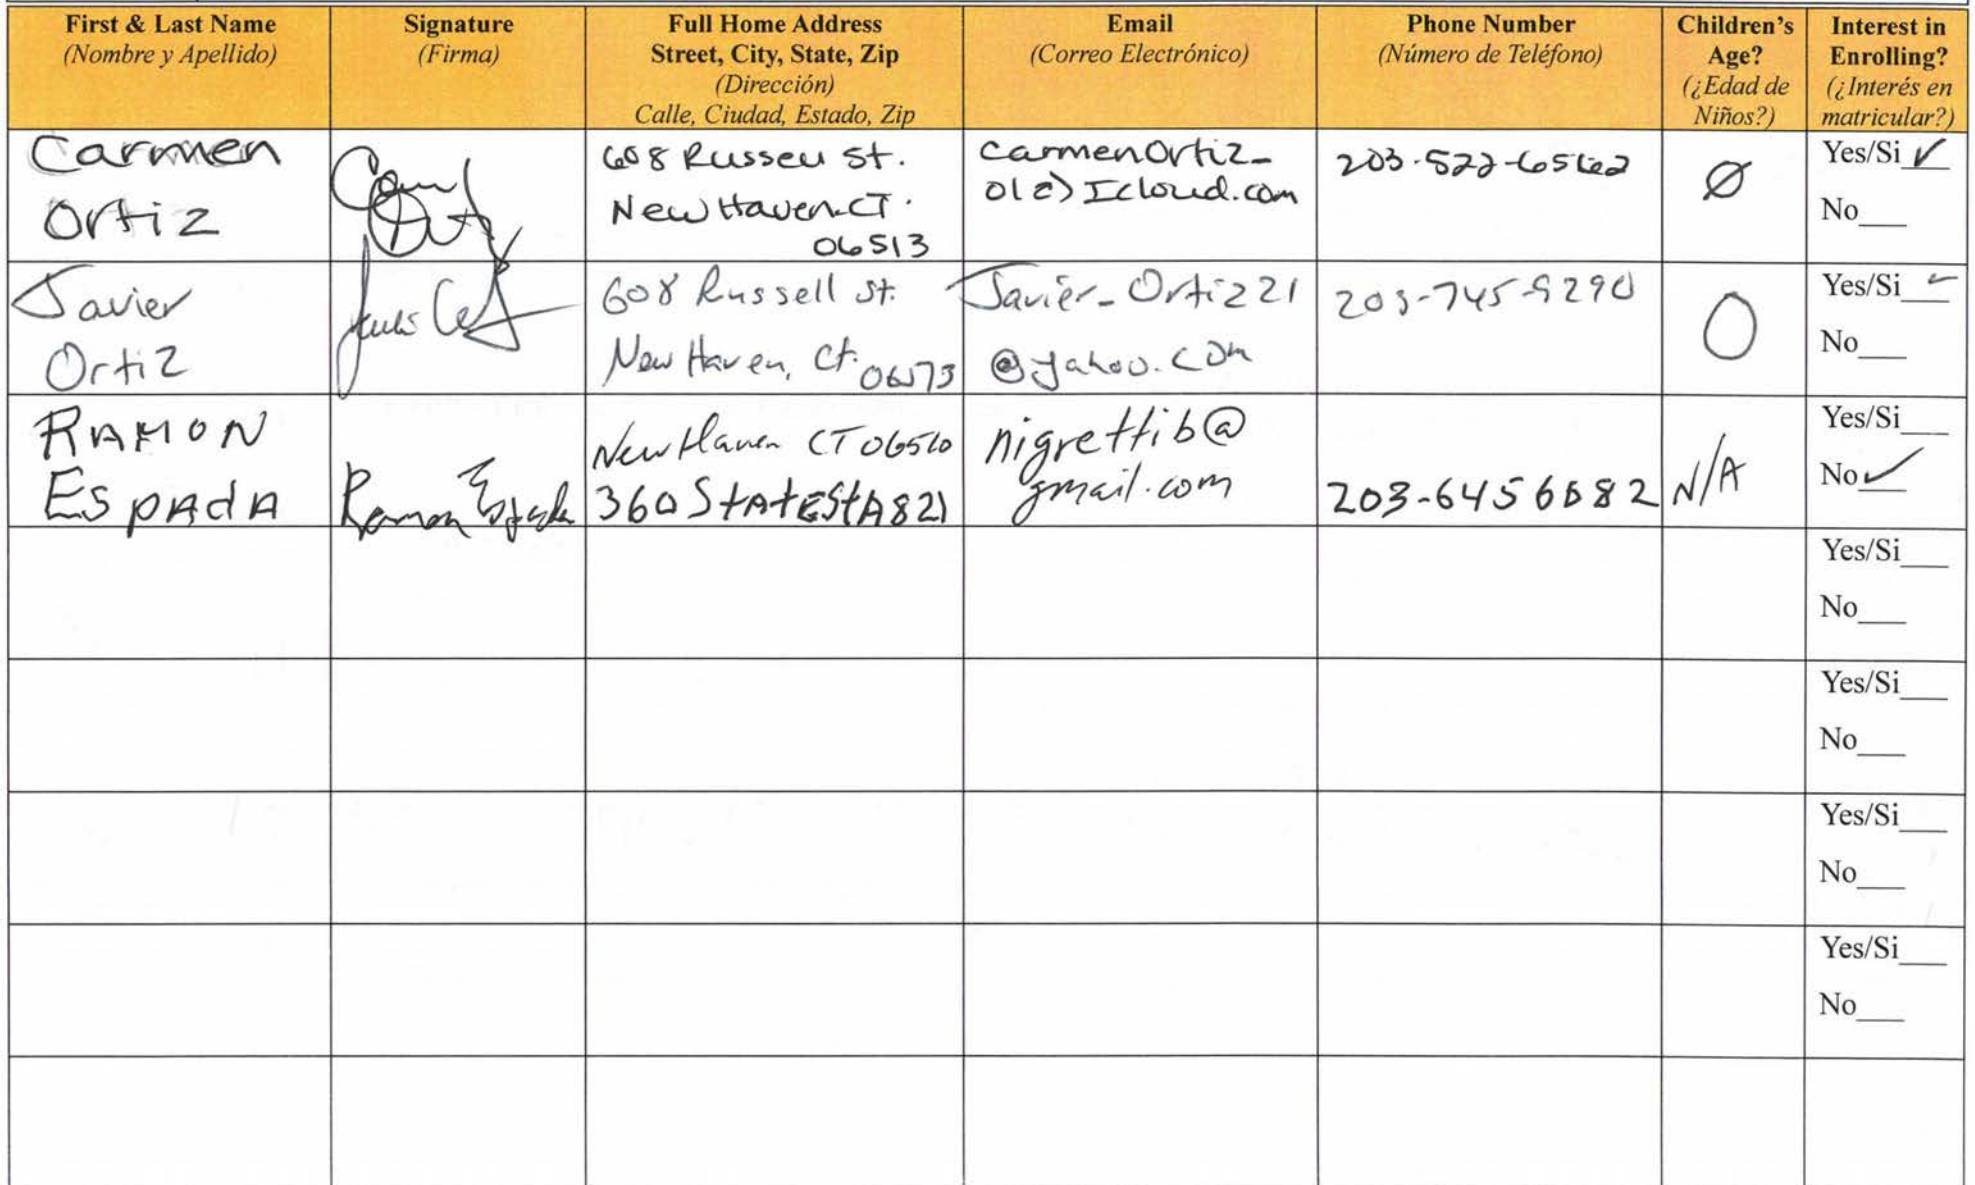 First & Last Name
(Nombre y Apellido)
Signature
(Firma)
Full Home Address
Street, City, State, Zip
(Dirección)
Calle, Ciudad, Estado, Zip
Email
(Correo Electrónico)
Phone Number
(Número de Teléfono)
Children's
Age?
(¿Edad de
Niños?)
Interest in
Enrolling?
(¿Interés en
matricular?)
Carmen
Ortiz
608 Russell St.
New Haven CT.
06513
CarmenOrtiz_
01@Icloud.com
203-522-6562
Ø
Yes/Si ✓
No___
Javier
Ortiz
608 Russell St.
New Haven, Ct.
Javier_Ortiz21
@yahoo.com
203-745-9290
0
Yes/Si ✓
No___
RAMON
EspAdA
Ramon Espada
New Haven CT 06510
360 StAtE St A821
nigrettib@
gmail.com
203-645
N/A
Yes/Si___
No ✓
Yes/Si___
No___
Yes/Si___
No___
Yes/Si___
No___
Yes/Si___
No___